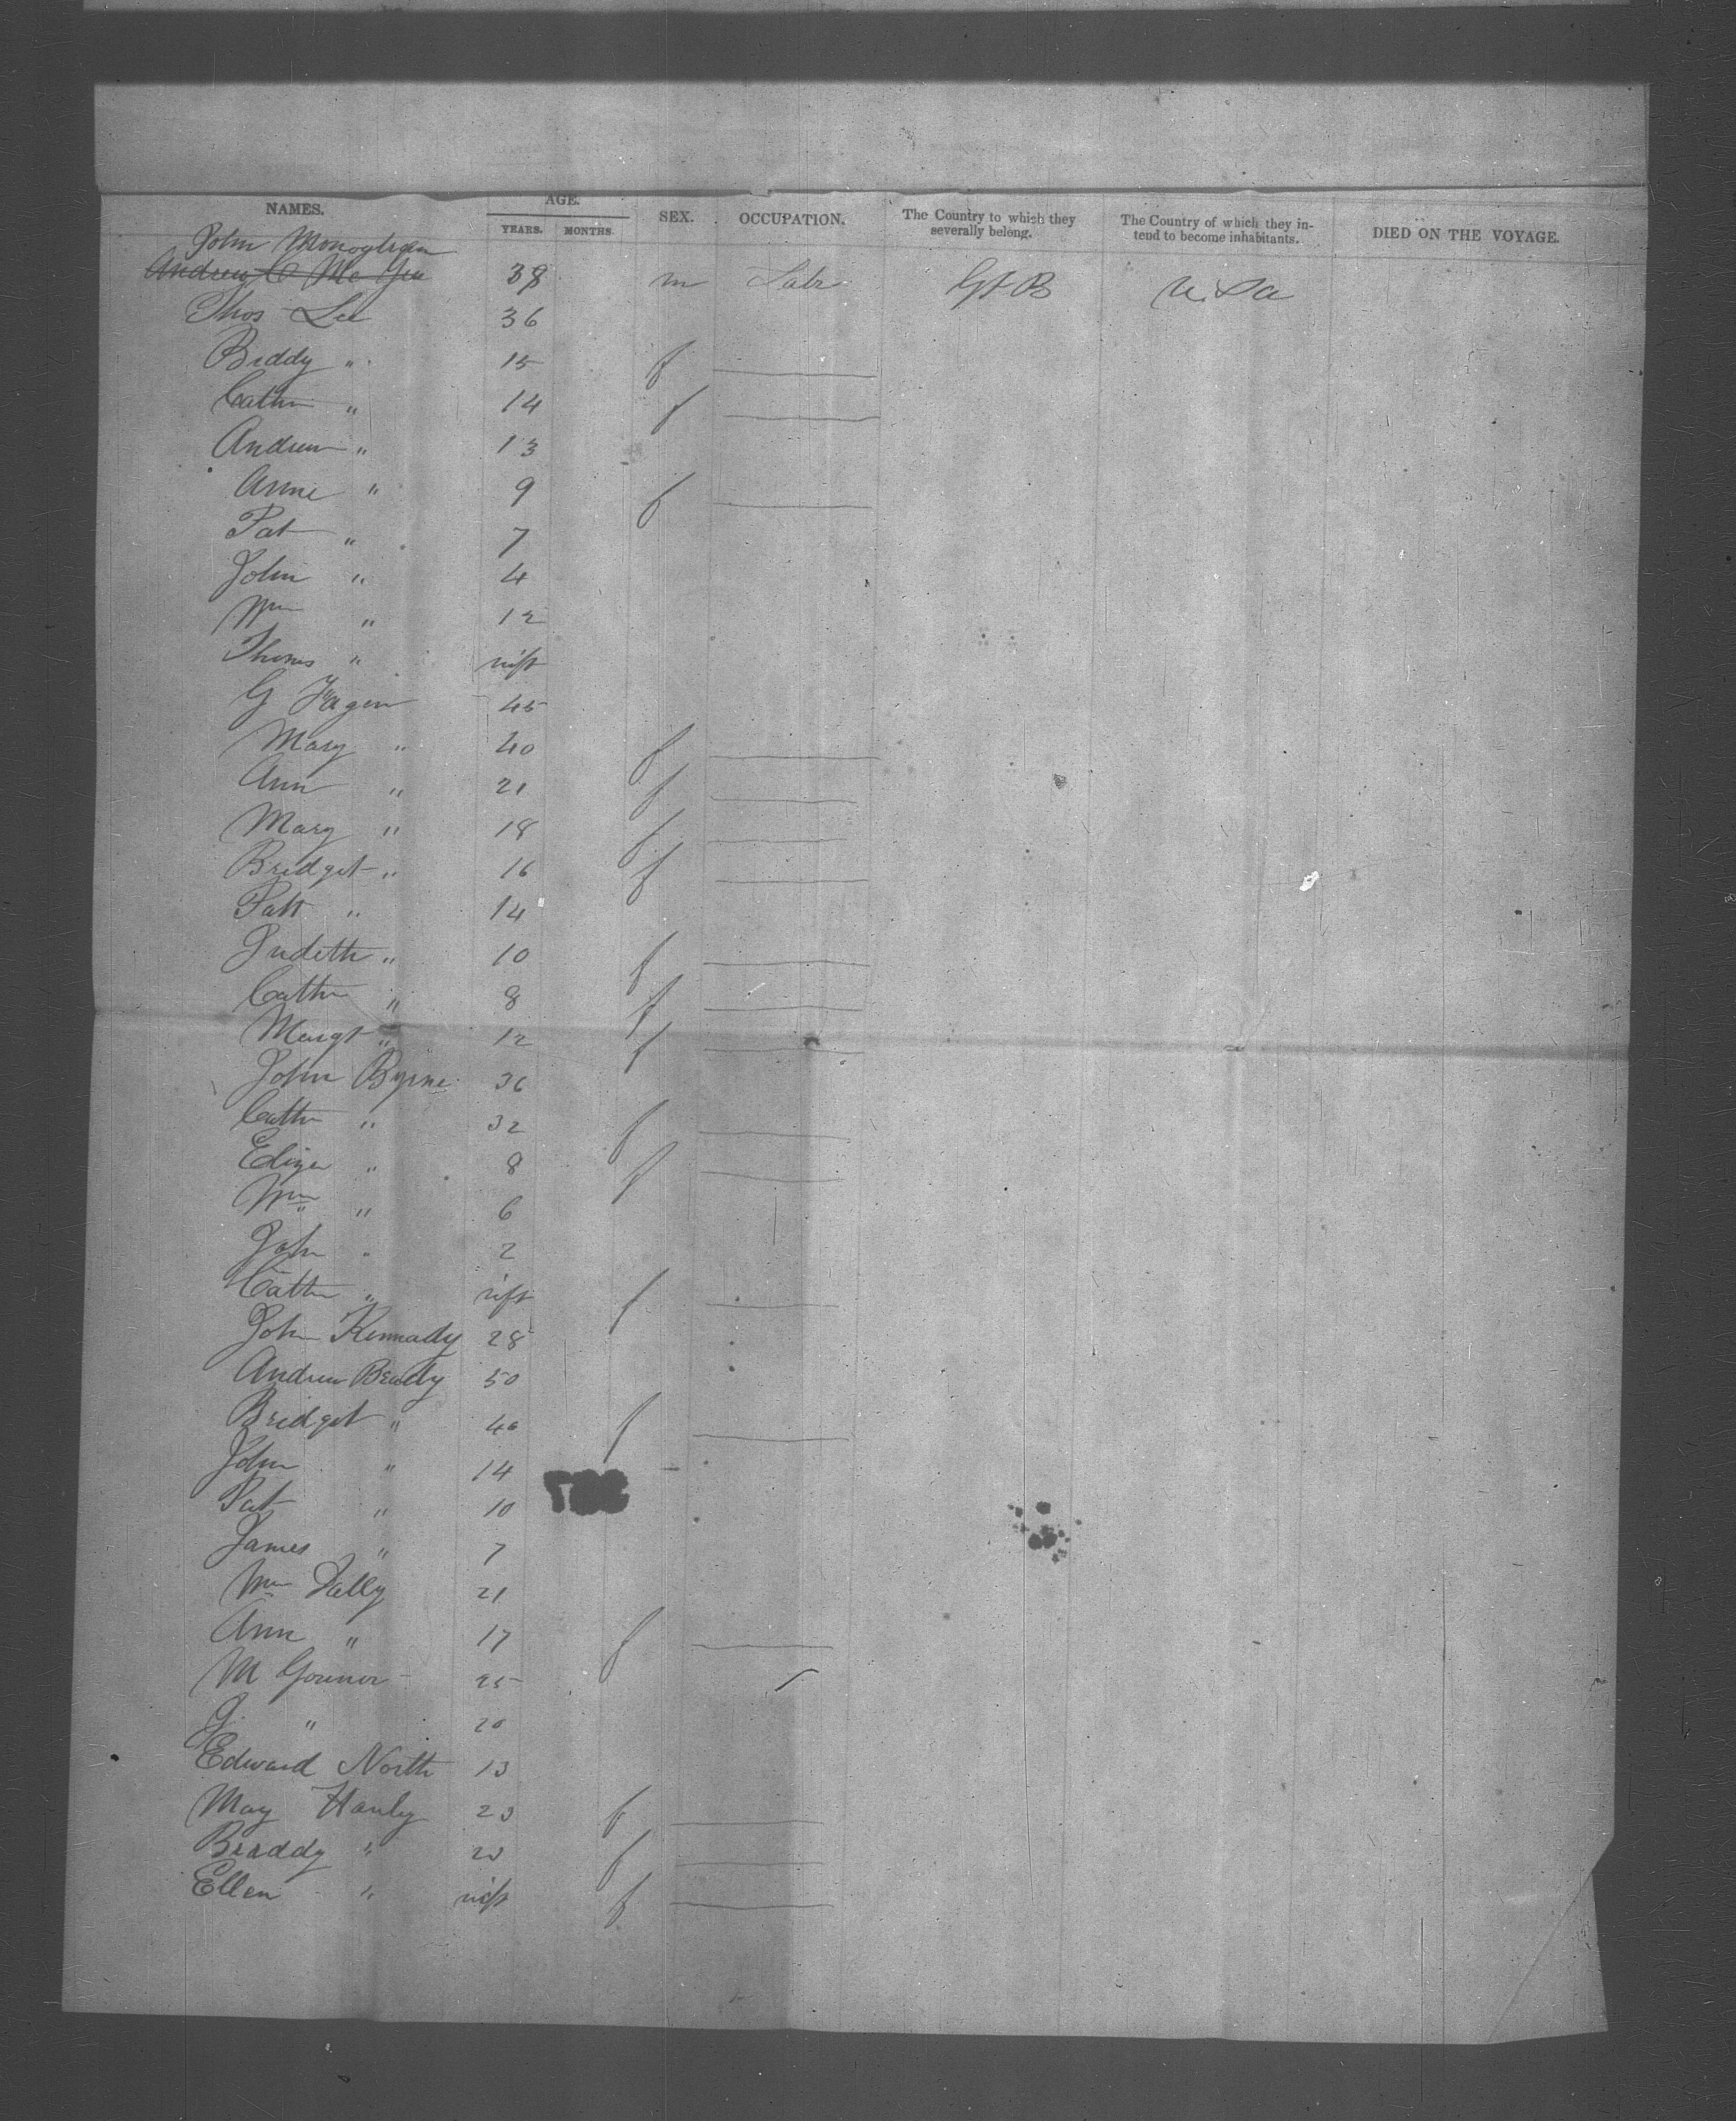 NAMES. AGE. YEARS. MONTHS. SEX. OCCUPATION. The Country to which they severally belong. The Country of which they intend to become inhabitants. DIED ON THE VOYAGE.
John Monoghan
Andrew C Mc Gee 38 m Labr Gt B U. Sa
Thos Lee 36
Biddy " 15 f
Cathn " 14 f
Andrew " 13
Anne " 9 f
Pat " 7
John " 4
Wm " 12
Thoms " inft
G Fagen 45
Mary " 40 f
Ann " 21 f
Mary " 18 f
Bridget " 16 f
Patt " 14
Judith " 10 f
Cathn " 8 f
Margt " 12 f
John Byrne 36
Cathn " 32 f
Eliza " 8 f
Wm " 6
John " 2
Cathn " inft f
John Kennady 28
Andrew Brady 50
Bridget " 40 f
John " 14
Pat " 10
James " 7
Wm Dally 21
Ann " 17 f
M 25
G. " 20
Edward North 13
May Hanly 23 f
Braddy " 20 f
Ellen " inft f